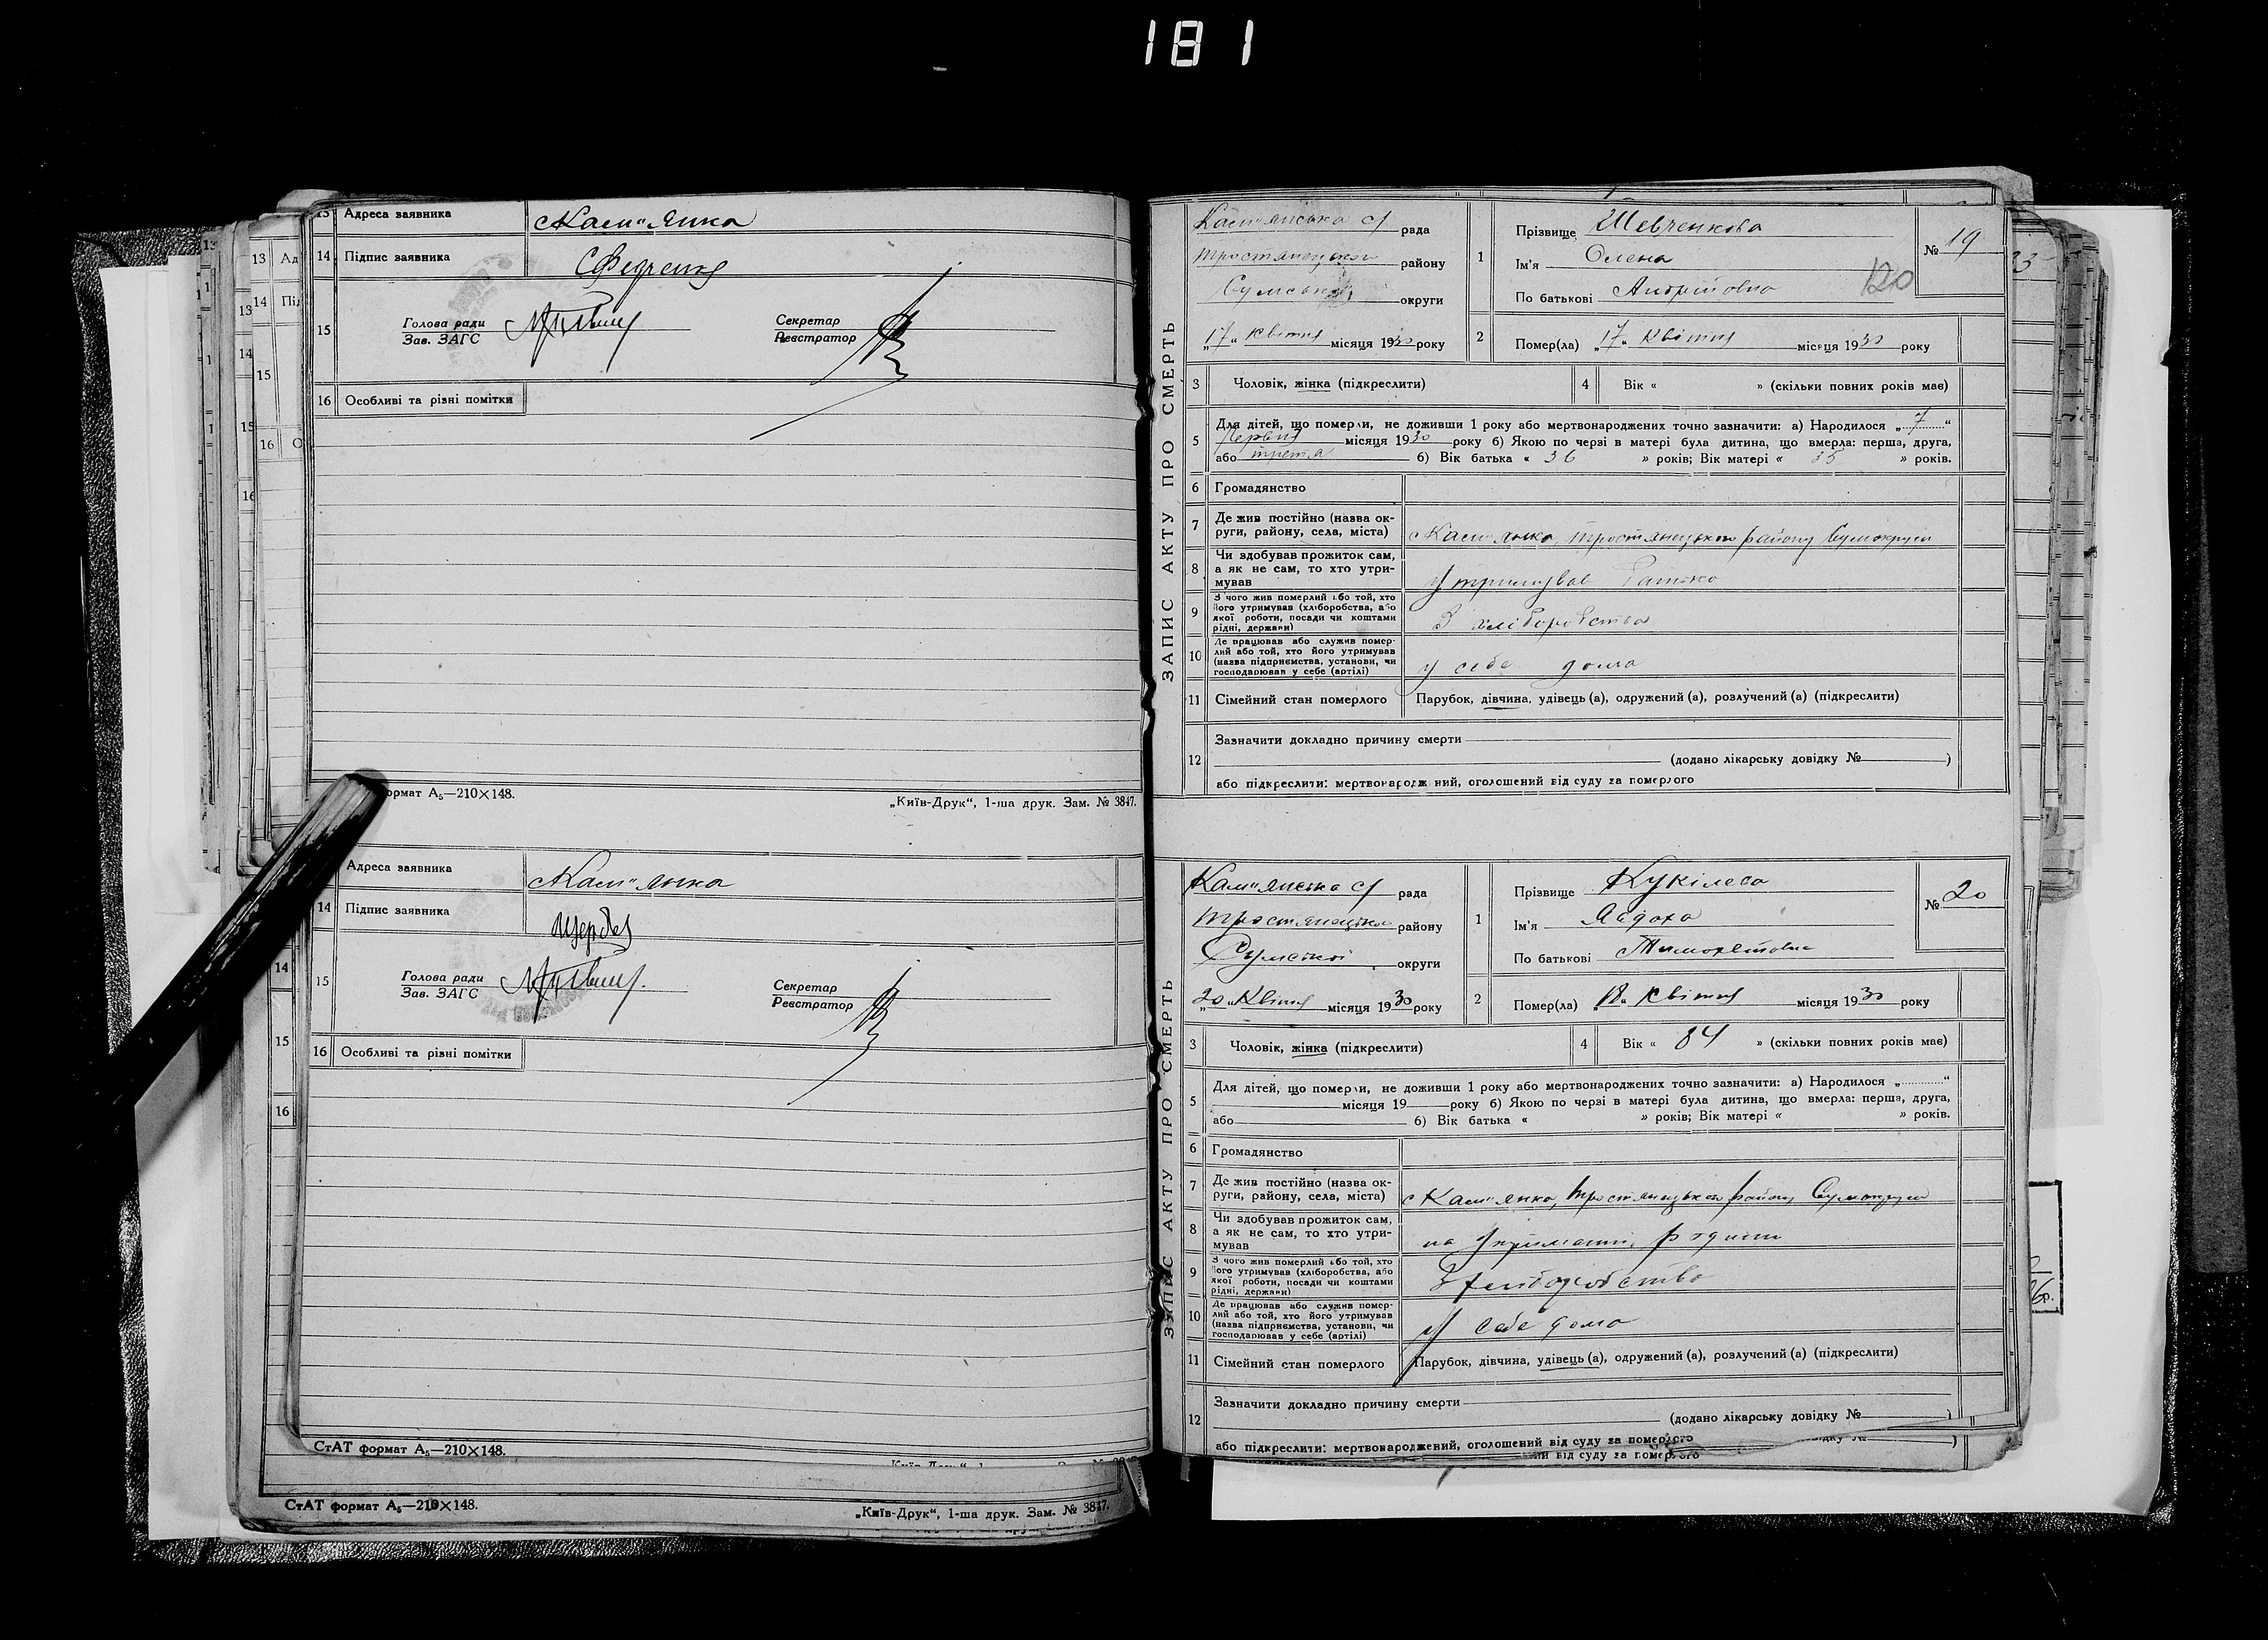 181
13 Адреса заявника с Кам"янка
14 Підпис заявника
15 Голова ради
Зав. ЗАГС
Секретар
Реєстратор
16 Особливі та різні помітки
формат А5—210×148.
„Київ-Друк“, 1-ша друк. Зам. № 3847.
Адреса заявника с Кам"янка
14 Підпис заявника
15 Голова ради
Зав. ЗАГС
Секретар
Реєстратор
16 Особливі та різні помітки
СтАТ формат А5—210×148.
СтАТ формат А5—210×148.
„Київ-Друк“, 1-ша друк. Зам. № 3847.
ЗАПИС АКТУ ПРО СМЕРТЬ
Кам"янська с/ рада
Тростянецького району
Сумської округи
„17“ квітня місяця 1930 року
1 Прізвище Шевченкова
Ім'я Олена
По батькові Андріївна
№ 19
120
2 Помер(ла) „17“ квітня місяця 1930 року
3 Чоловік, жінка (підкреслити)
4 Вік « » (скільки повних років має)
5 Для дітей, що померли, не доживши 1 року або мертвонароджених точно зазначити: а) Народилося „7“
місяця 1930 року б) Якою по черзі в матері була дитина, що вмерла: перша, друга,
або третя б) Вік батька « 36 » років; Вік матері « 35 » років.
6 Громадянство
7 Де жив постійно (назва округи, району, села, міста) с Кам"янка, Тростянецького району Сумокруги
8 Чи здобував прожиток сам, а як не сам, то хто утримував утримував батько
9 З чого жив померлий або той, хто його утримував (хліборобства, або якої роботи, посади чи коштами рідні, держави) З хліборобства
10 Де працював або служив померлий або той, хто його утримував (назва підприємства, установи, чи господарював у себе (артілі) у себе дома
11 Сімейний стан померлого Парубок, дівчина, удівець (а), одружений (а), розлучений (а) (підкреслити)
12 Зазначити докладно причину смерти
(додано лікарську довідку № )
або підкреслити: мертвонароджений, оголошений від суду за померлого
ЗАПИС АКТУ ПРО СМЕРТЬ
Кам"янська с/ рада
Тростянецького району
Сумської округи
„20“ Квітня місяця 1930 року
1 Прізвище Кукілева
Ім'я Явдоха
По батькові Тимофіївна
№ 20
2 Помер(ла) „18“ квітня місяця 1930 року
3 Чоловік, жінка (підкреслити)
4 Вік « 84 » (скільки повних років має)
5 Для дітей, що померли, не доживши 1 року або мертвонароджених точно зазначити: а) Народилося „ “
місяця 19 року б) Якою по черзі в матері була дитина, що вмерла: перша, друга,
або б) Вік батька « » років; Вік матері « » років.
6 Громадянство
7 Де жив постійно (назва округи, району, села, міста) с Кам"янка, Тростянецького району Сумокруги
8 Чи здобував прожиток сам, а як не сам, то хто утримував на утриманні родини
9 З чого жив померлий або той, хто його утримував (хліборобства, або якої роботи, посади чи коштами рідні, держави) З хліборобства
10 Де працював або служив померлий або той, хто його утримував (назва підприємства, установи, чи господарював у себе (артілі) у себе дома
11 Сімейний стан померлого Парубок, дівчина, удівець (а), одружений (а), розлучений (а) (підкреслити)
12 Зазначити докладно причину смерти
(додано лікарську довідку № )
або підкреслити: мертвонароджений, оголошений від суду за померлого